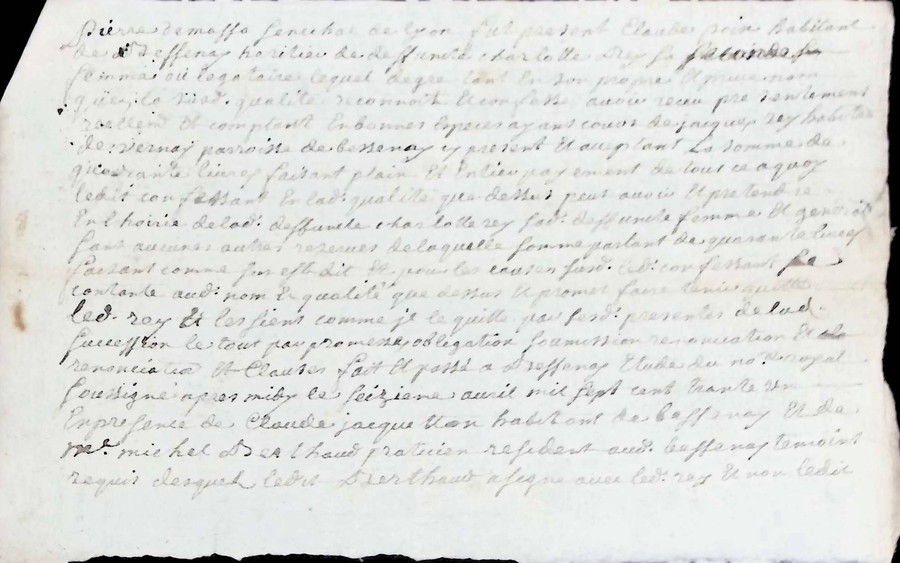 Pierre de masso senechal de lyon fut present Claude poin habitant
de Bessenay heritier de deffuncte charlotte Rey sa seconde
femme ou legataire lequel de gré tant en son propre et privé nom
qu'en la susd. qualité reconnoit et confesse avoir receu presentement
reellemt et comptant en bonnes especes ayans cours de jacques rey habitan
de vernay parroisse de bessenay cy present et acceptant La somme de
quarante livres faisant plain et Entier payement de tout ce a quoy
ledit confessant en lad. qualité que dessus peut avoir et pretendre
En l'hoirie de lad. deffuncte charlotte rey sad. deffuncte femme et general
sans aucunes autres reserves de laquelle somme partant de quarante livres
faisant comme sus est dit et pour les causes susd. led. confessant se
contante aud. nom et qualité que dessus et promet faire tenir quitte
led. rey et les siens comme je le quitte par sesd. presentes de lad.
succession le tout par promesse obligation soumission renonciation et
renonciation et clauses fait et passé a Bessenay Etude du no.re royal
soussigné apres midy le seizieme avril mil sept cent trante un
En presence de Claude jacquetton habitant de bessenay et de
Mr. michel Berthaud praticien resident aud. bessenay temoins
requis desquels ledit Berthaud a signé avec led. rey et non ledit